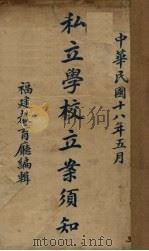 中華民國十八年五月
私立學校立案須知
福建教育廳編輯